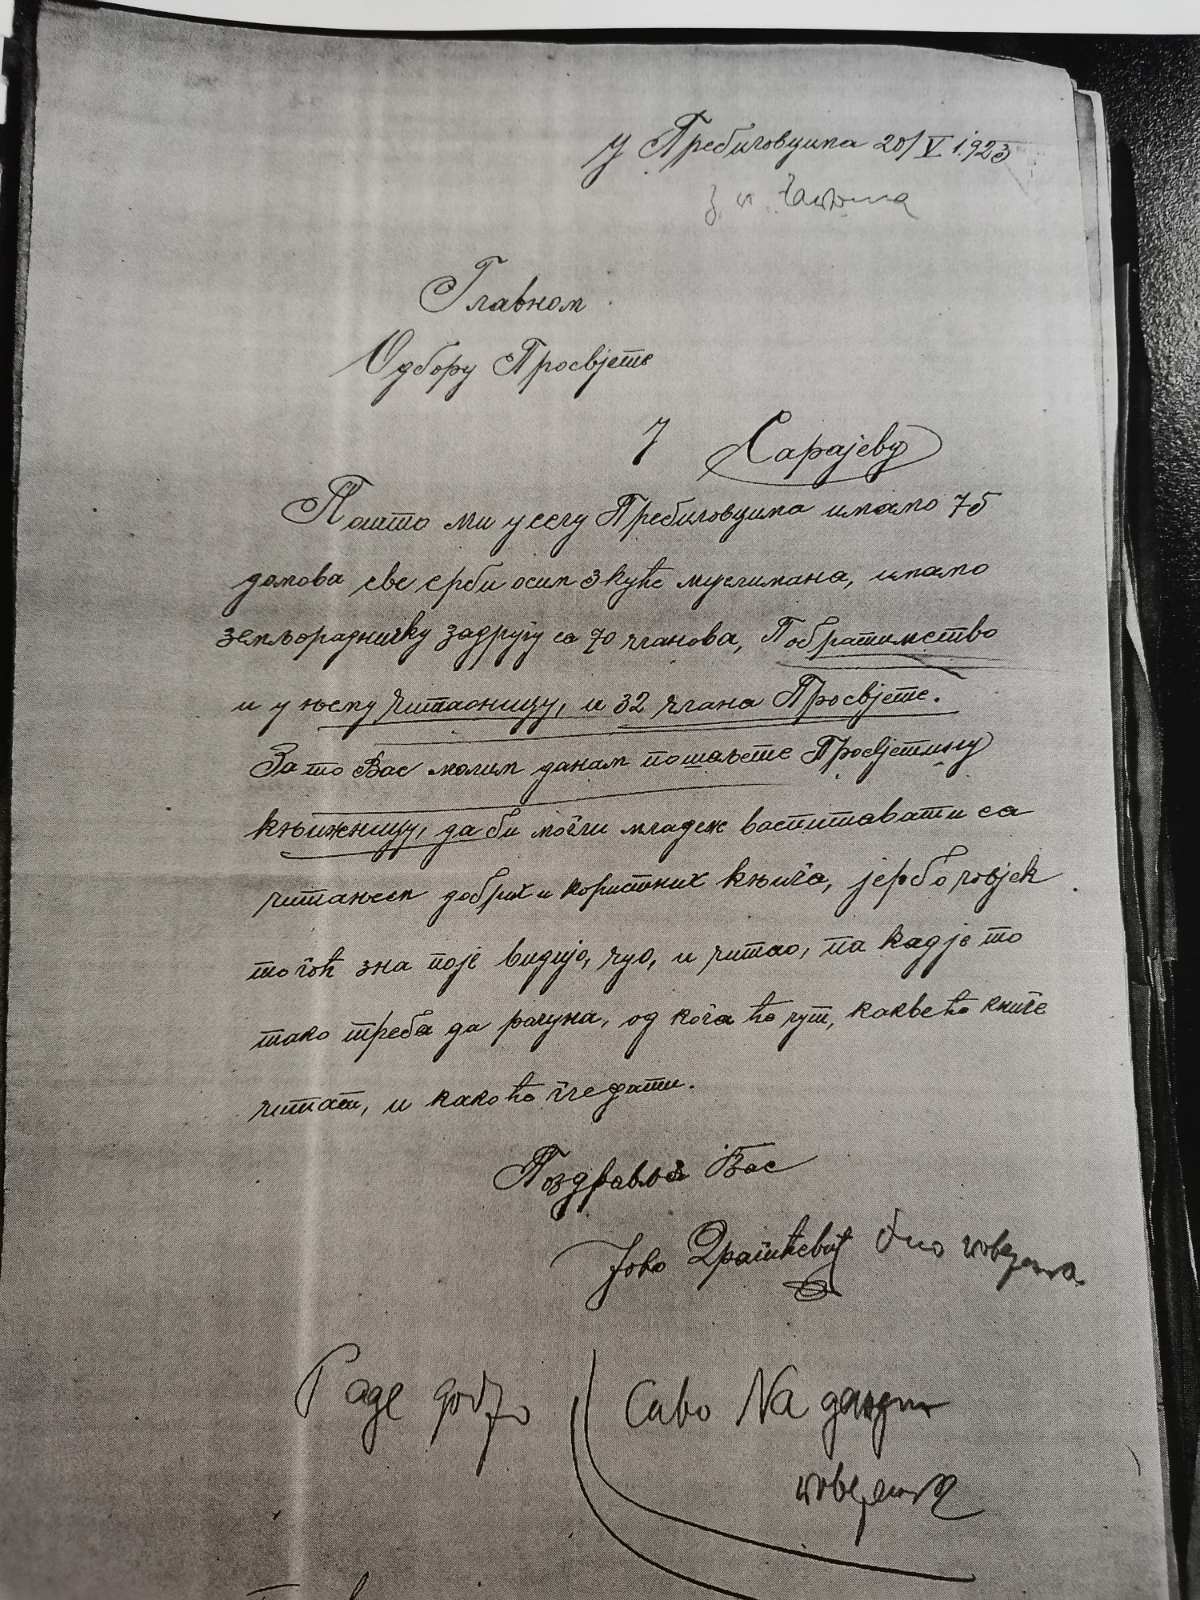 у Пребиловцима 20/V 1923
Главном
Одбору Просвјете
у Сарајеву
Пошто ми у селу Пребиловцима имамо 75
домова све срби осим 3 куће муслимана, имамо
земљорадничку задругу са 70 чланова, Побратимство
и у њему читаоницу, и 32 члана Просвјете.
За то Вас молим данам пошаљете Просвјетину
књижницу, да би могли младеж васпитавати са
читањем добрих и користних књига, јербо човјек
то гођ зна што је видијо, чуо, и читао, па кад је то
тако треба да рачуна, од кога ће чут, какве ће књиге
читат, и како ће гледати.
Поздравља Вас
Јово Драгићевић
Раде
Саво На